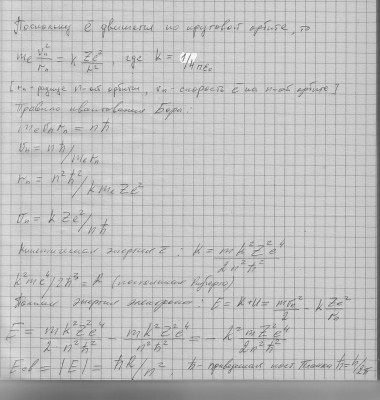 Поскольку ē движется по круговой орбите, то
me vn²/rn = k Ze²/rn², где k = 1/4πε₀
[rn - радиус n-ой орбиты, vn - скорость ē на n-ой орбите]
Правило квантования Бора:
me vn rn = nħ
vn = nħ/me rn
rn = n²ħ²/k me Ze²
vn = k Ze²/nħ
Кинетическая энергия ē: K = m k²Z²e⁴/2n²ħ²
k²me⁴/2ħ³ = R (постоянная Ридберга)
Полная энергия электрона: E = K+U = mvn²/2 - k Ze²/rn
E = m k²Z²e⁴/2 n²ħ² - m k²Z²e⁴/n²ħ² = - k²mZ²e⁴/2n²ħ²
Eсв = |E| = ħR/n², ħ - приведенная пост. Планка ħ=h/2π